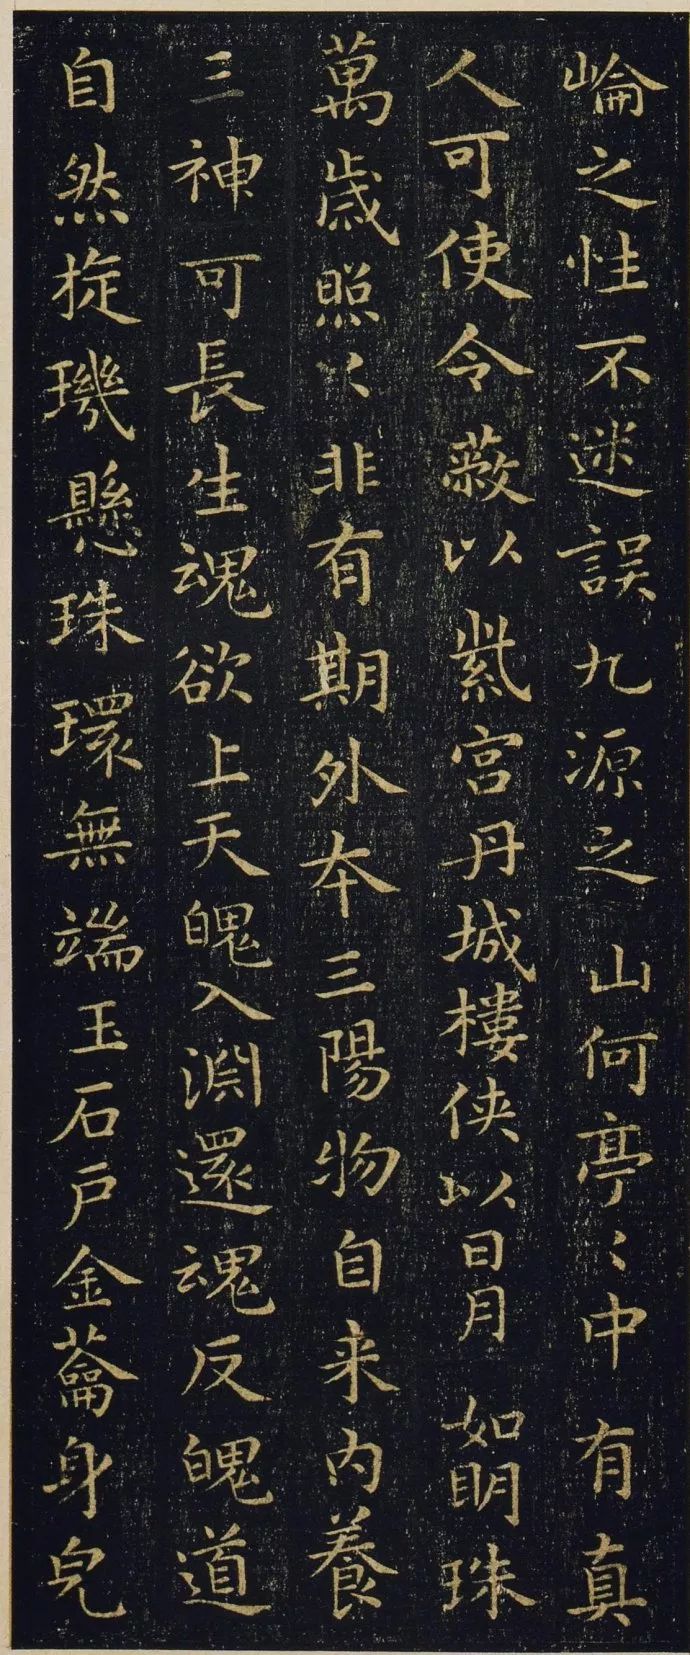 崘之性不迷誤九源之山何亭〻中有真
人可使令蔽以紫宮丹城樓侠以日月如明珠
萬歲照〻非有期外夲三陽物自来内養
三神可長生魂欲上天魄入淵還魂反魄道
自然㨁璣懸珠環無端玉石戶金蘥身皃